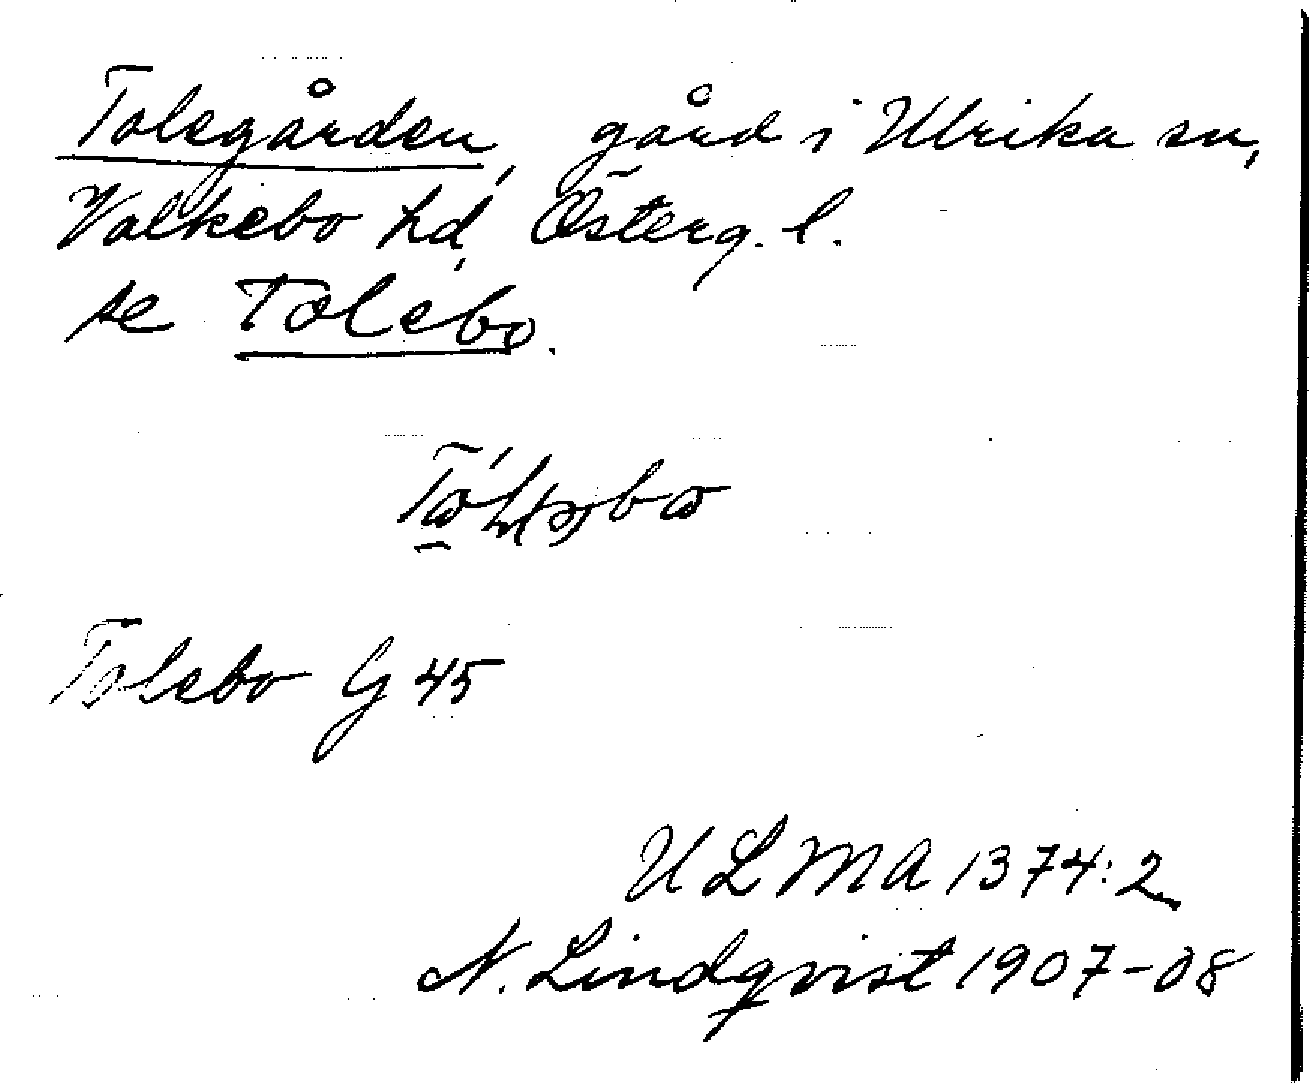 Tolegården, gård i Ulrika sn,
Valkebo hd, Österg. l.
se Tolebo.
Tolebo G 45
ULMA 1374:2
N. Lindqvist 1907-08